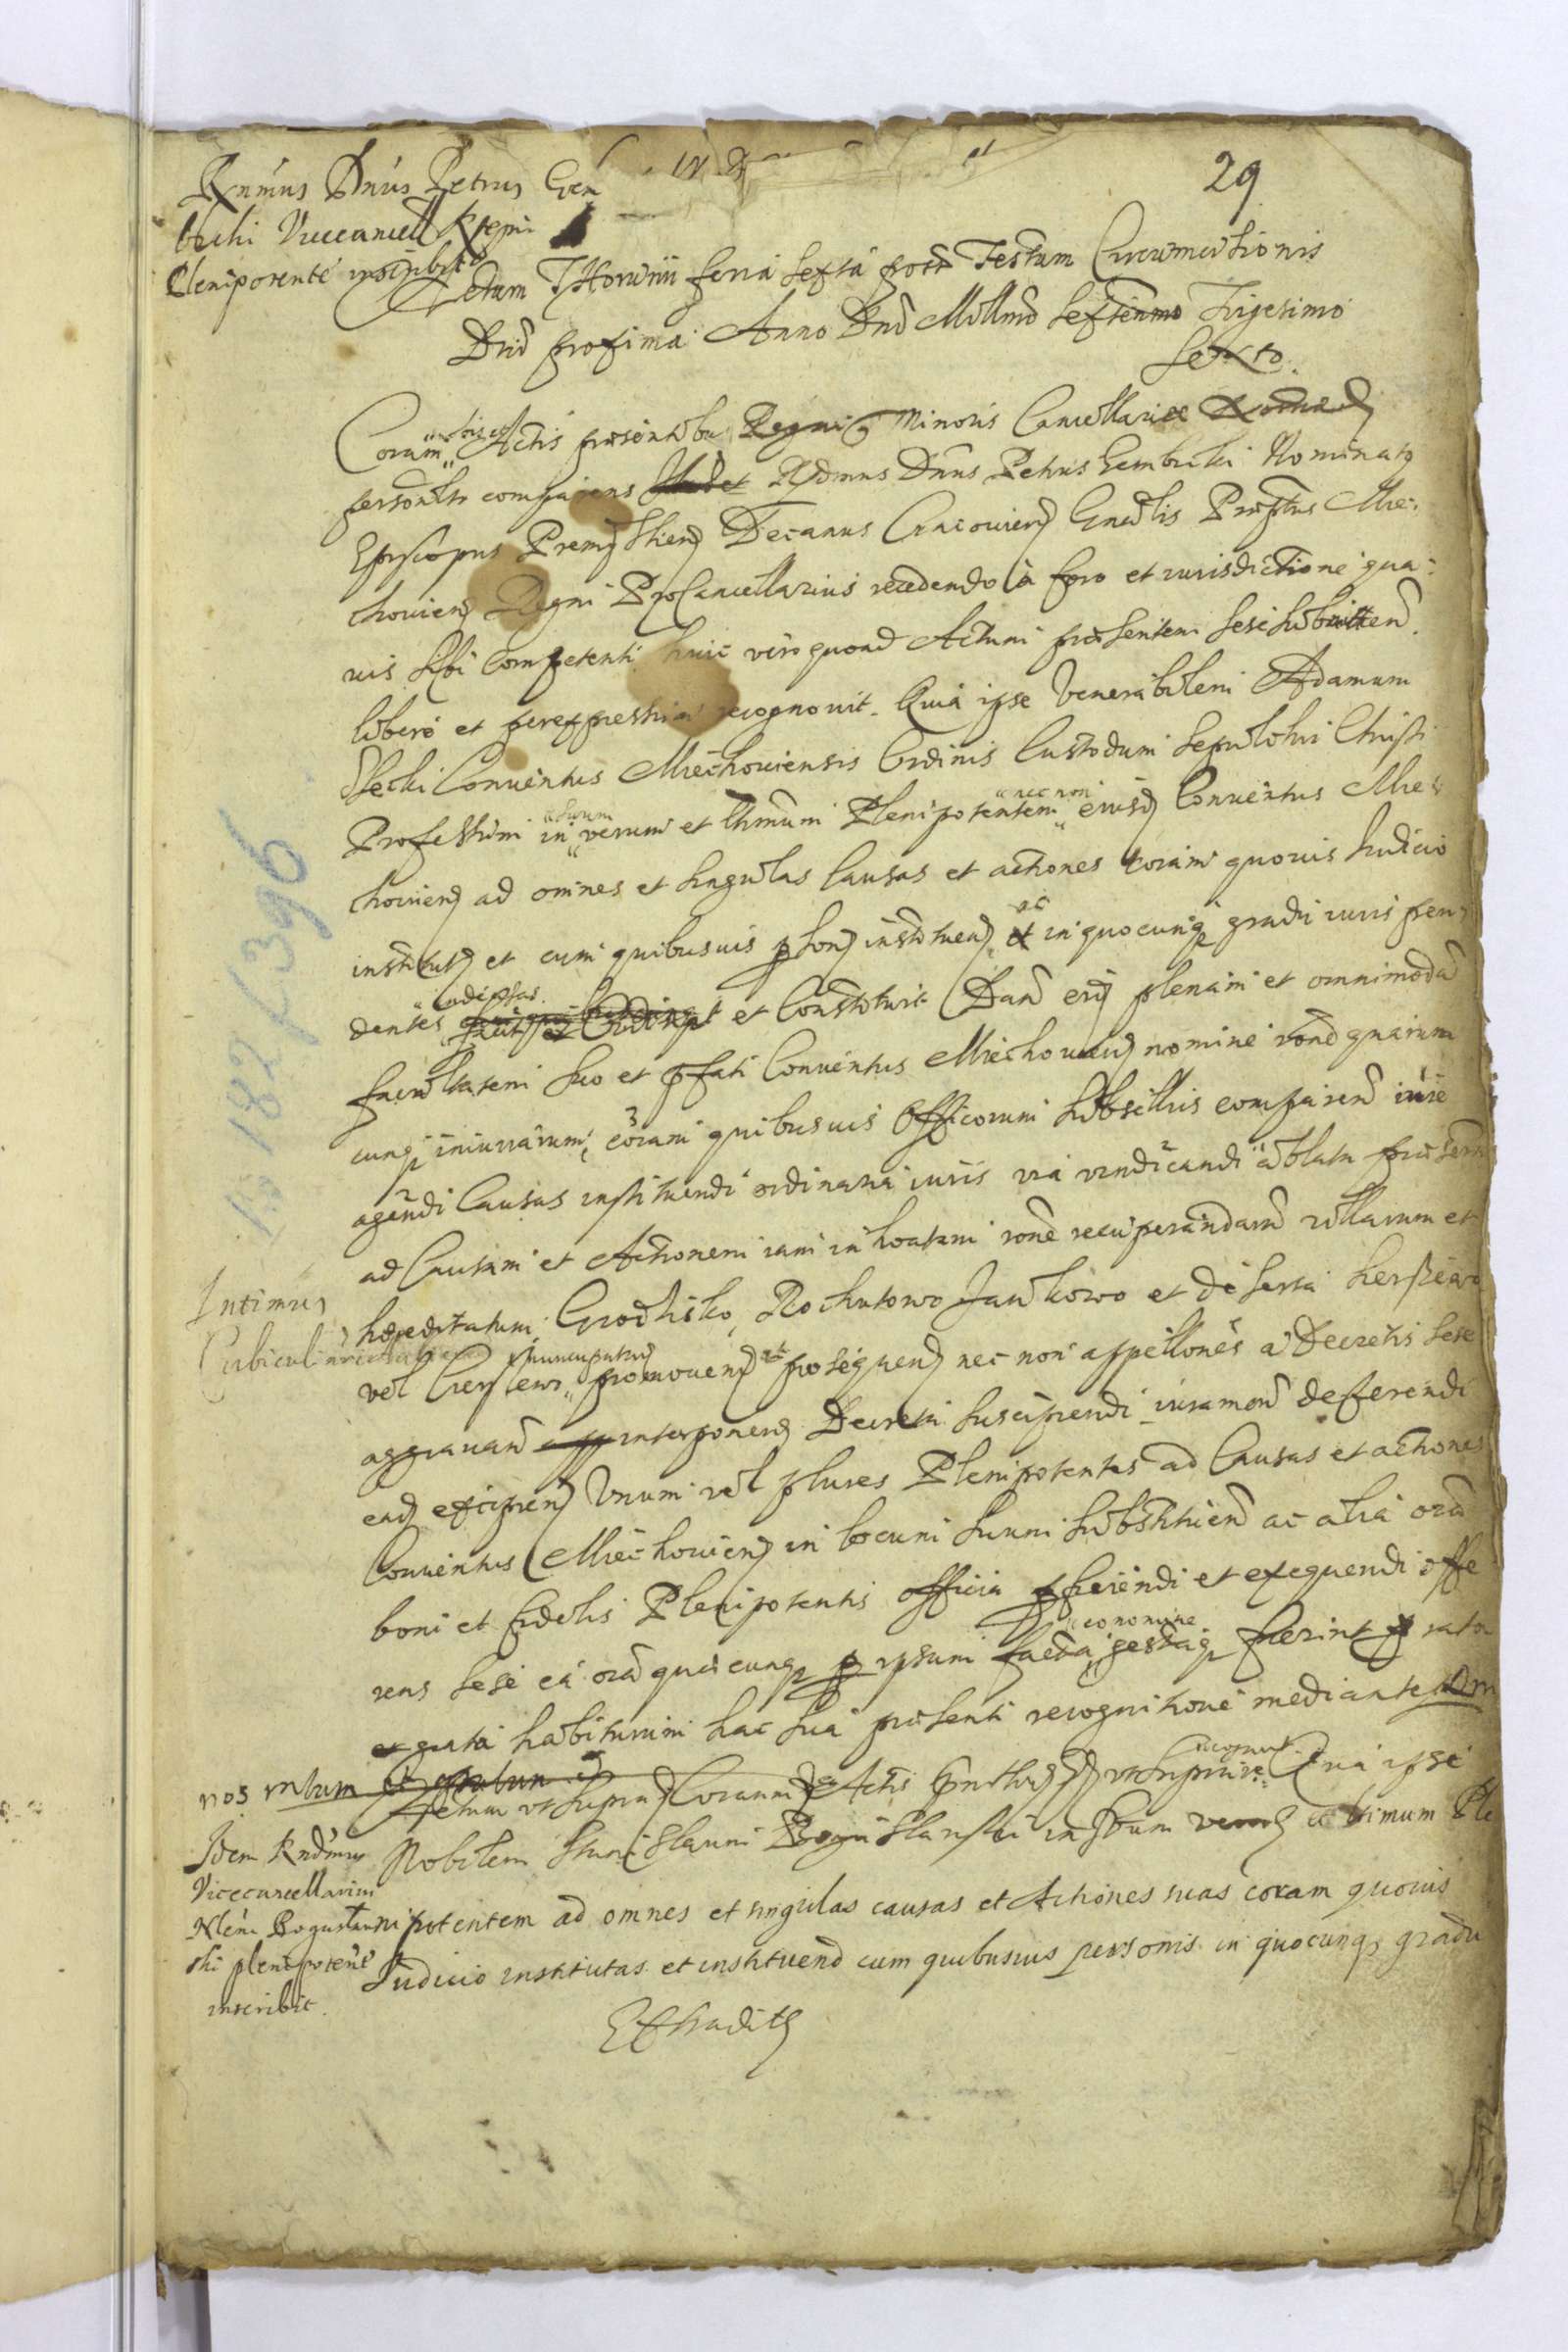 29
Rnmus Dnus Petrus Gem
bicki Vicecancell Regni
Plenipotente inscribit
Actum Thorunii feria sexta post Festum Circumcisionis
Dni proxima Anno Dni Millmo Sexcenmo Trigesimo
Sexto.
Coram Actis praesentibus Regni Minoris Cancellariae
personalr comparens Rndmus Dnus Petrus Gembicki Nominato
Episcopus Premisliens Decanus Cracoviens Gnalis Praeptus Mie:
choviens Regni ProCancellarius recedendo a foro et iurisdictione qua:
vis sibi Competenti huic vero quoad Actum praesentem sese submitten
libere et per expressum recognovit. Quia ipse Venerabilem Adamum
Conventus Miechoviensis Ordinis Custodum Sepulchri Christi
Professum in suum verum et lthmum Plenipotentem nec non eiusd Conventus Mie
choviens ad omnes et singulas Causas et actiones coram quovis Judicio
institut et cum quibusvis pson instituen ac in quocunq gradu iuris pen
dentes et Constituit Dans eid plenam et omnimodam
facultatem suo et pfati Conventus Miechoviens nomine rone quarum
cunq iniuriarum, coram quibusvis Officiorum subselliis comparend iure
agendi Causas instituendi ordinaria iuris via vindicandi ablata praesertim
ad Causam et Actionem iam inchoatam rone recuperandarum villarum et
haereditatum, Grodzisko, Rochutowo Jankowo et deserta
Intimus
Cubicul
vel nuncupatas promovend et prosequend nec non appellones a Decretis sese
aggravan interponend Decreta suscipiendi iuramen deferendi
ead excipiend Unum vel plures Plenipotentes ad Causas et actiones
Conventus Miechoviens in locum suum substituend ac alia oia
boni et fidelis Plenipotentis officia pficiendi et exequendi offe
rens sese ea oia quaecunq p ipsum eo nomine facta gestaq fuerint rata
et grata habiturum hac sua praesenti recognitione mediante
Actum ut supra Coram Actis ut supra recognovit Quia ipse
Idem Rndmus
Vicecancellarius
Nlem Bogusławs
ski plenipotente
inscribit.
Nobilem Stanislaum Boguslawski in suum verum et ltimum Ple
nipotentem ad omnes et singulas causas et Actiones suas coram quovis
Judicio institutas et instituend cum quibusvis personis in quocunq gradu